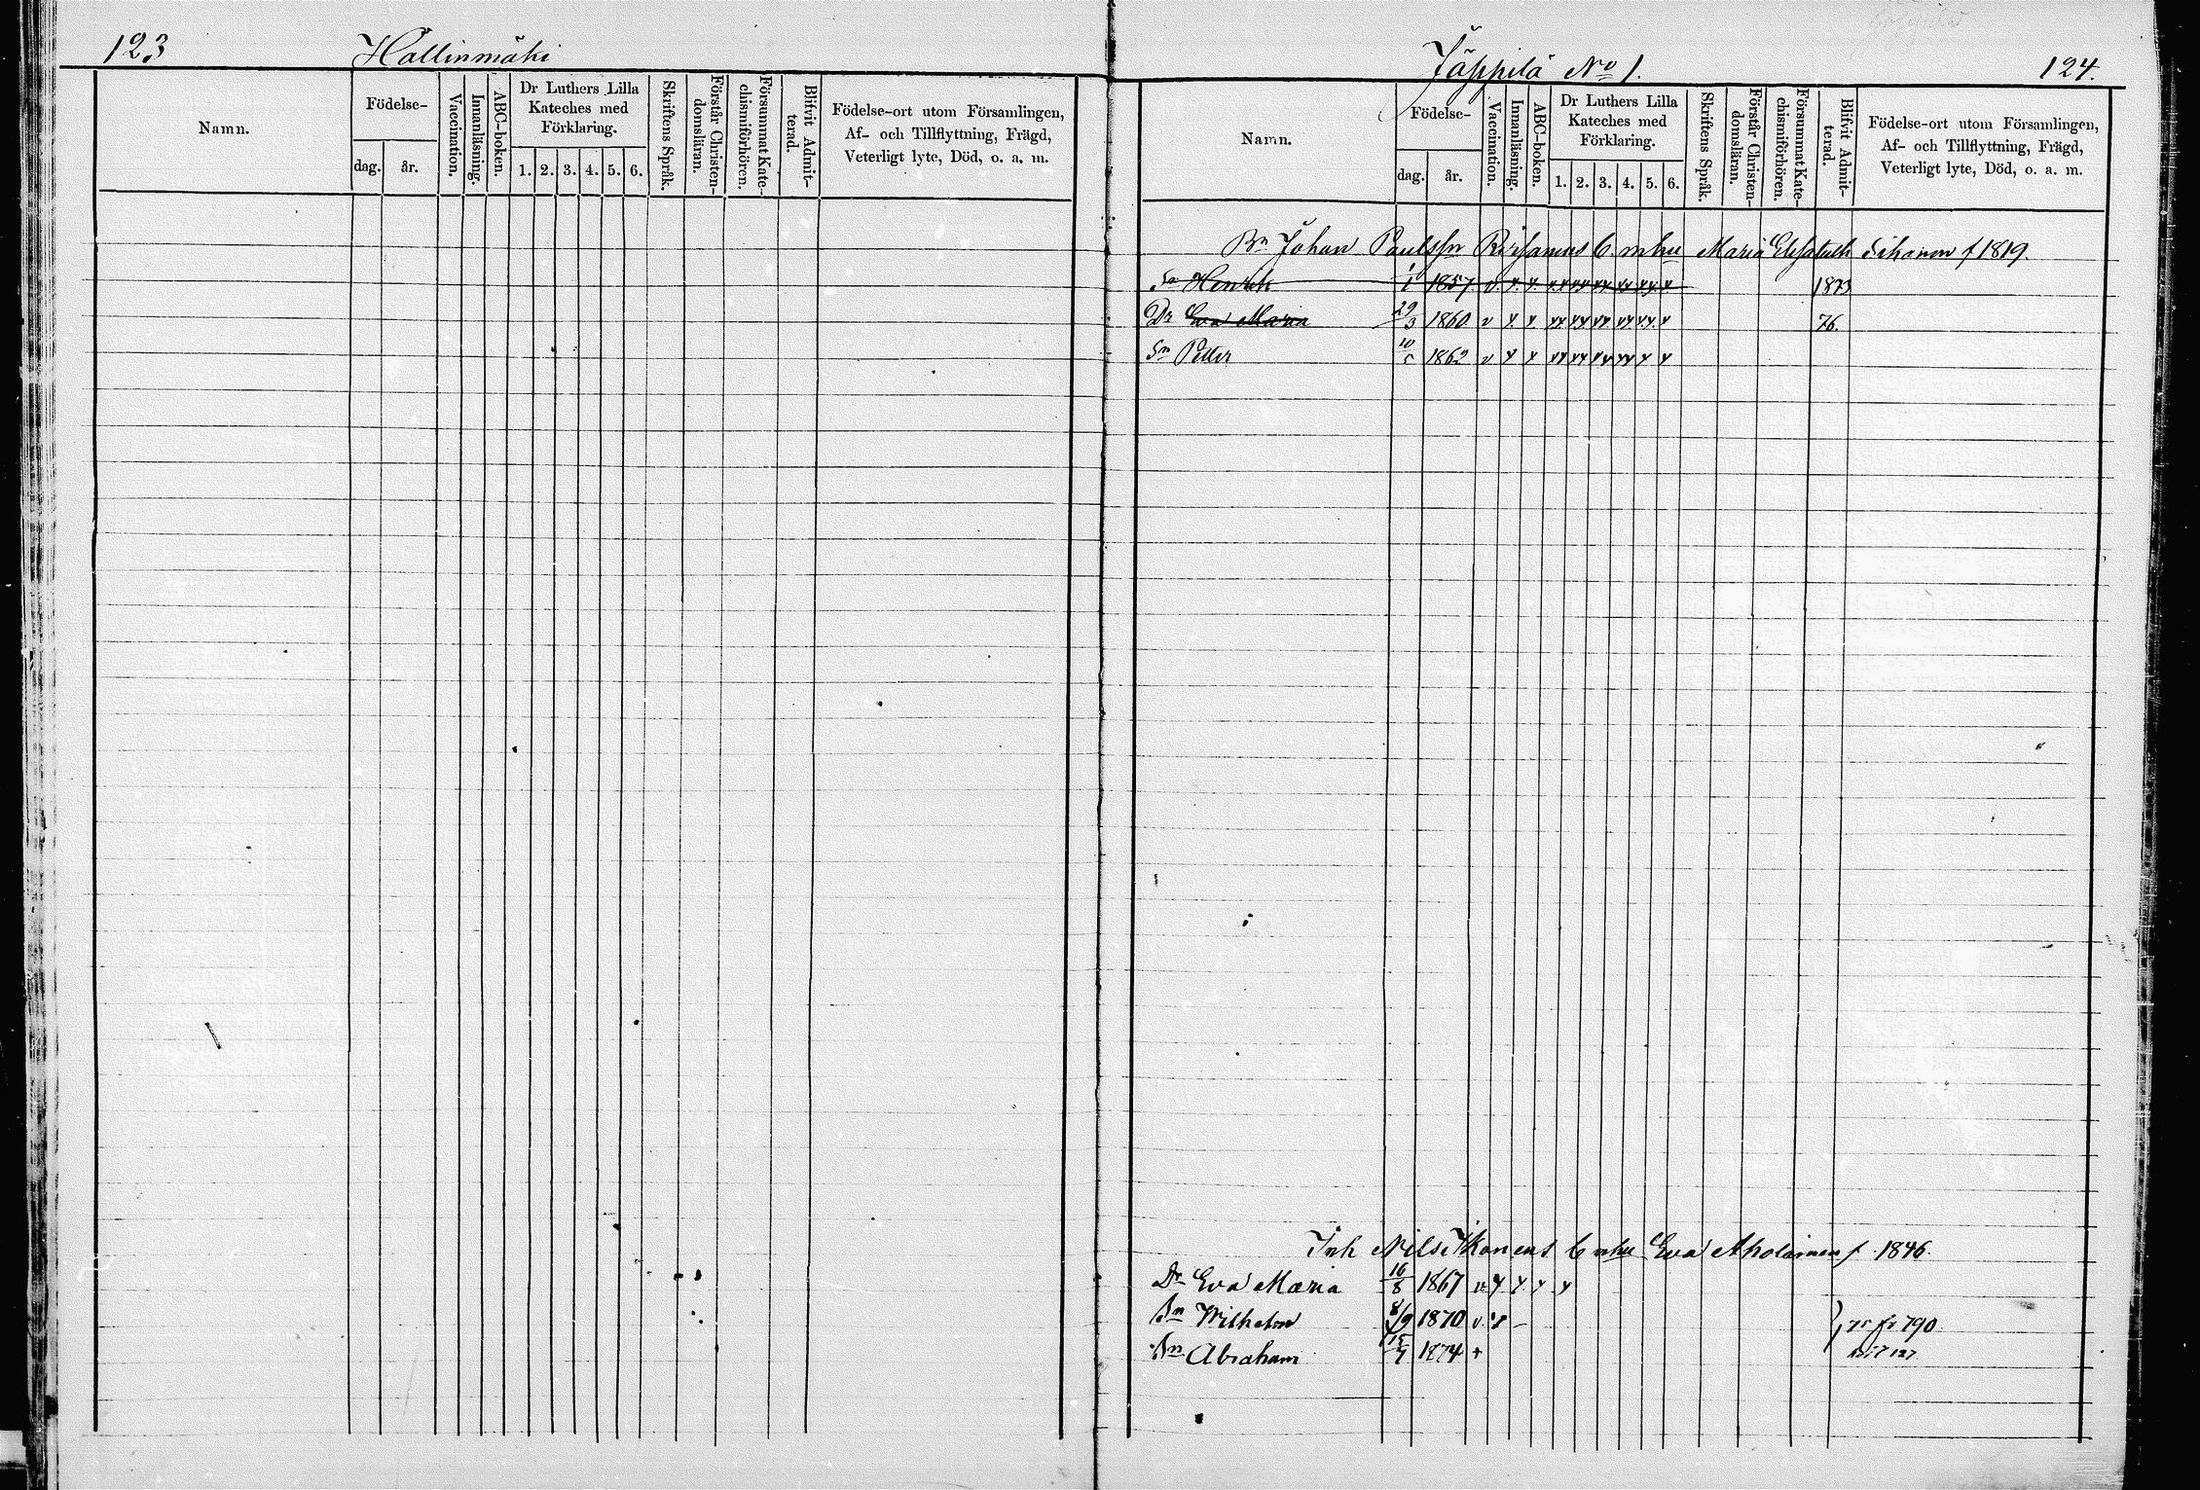 123 Hallinmäki
Namn.
Födelse-
dag. år.
Vaccination.
Innanläsning.
ABC-boken.
Dr Luthers Lilla
Kateches med
Förklaring.
1. 2. 3. 4. 5. 6.
Skriftens Språk.
Förstår Christen-
domsläran.
Försummat Kate-
chismiförhören.
Blifvit Admit-
terad.
Födelse-ort utom Församlingen,
Af- och Tillflyttning, Frägd,
Veterligt lyte, Död, o. a. m.
Jäppilä No 1. 124.
Namn.
Födelse-
dag. år.
Vaccination.
Innanläsning.
ABC-boken.
Dr Luthers Lilla
Kateches med
Förklaring.
1. 2. 3. 4. 5. 6.
Skriftens Språk.
Förstår Christen-
domsläran.
Försummat Kate-
chismiförhören.
Blifvit Admit-
terad.
Födelse-ort utom Församlingen,
Af- och Tillflyttning, Frägd,
Veterligt lyte, Död, o. a. m.
Bn Johan Paulssn mhu Maria Elisabeth f 1819.
Sn Henrik 1/1 1857 1873
Dr Eva Maria 29/3 1860 v 76.
Sn Petter 10/5 1862 v
Inh Nils Ikonens b mhu Eva Aholainen f. 1846.
Dr Eva Maria 16/8 1867 v
Sn Wilhelm 8/9 1870 v
75 fr 790
Sn Abraham 15/7 1874 +